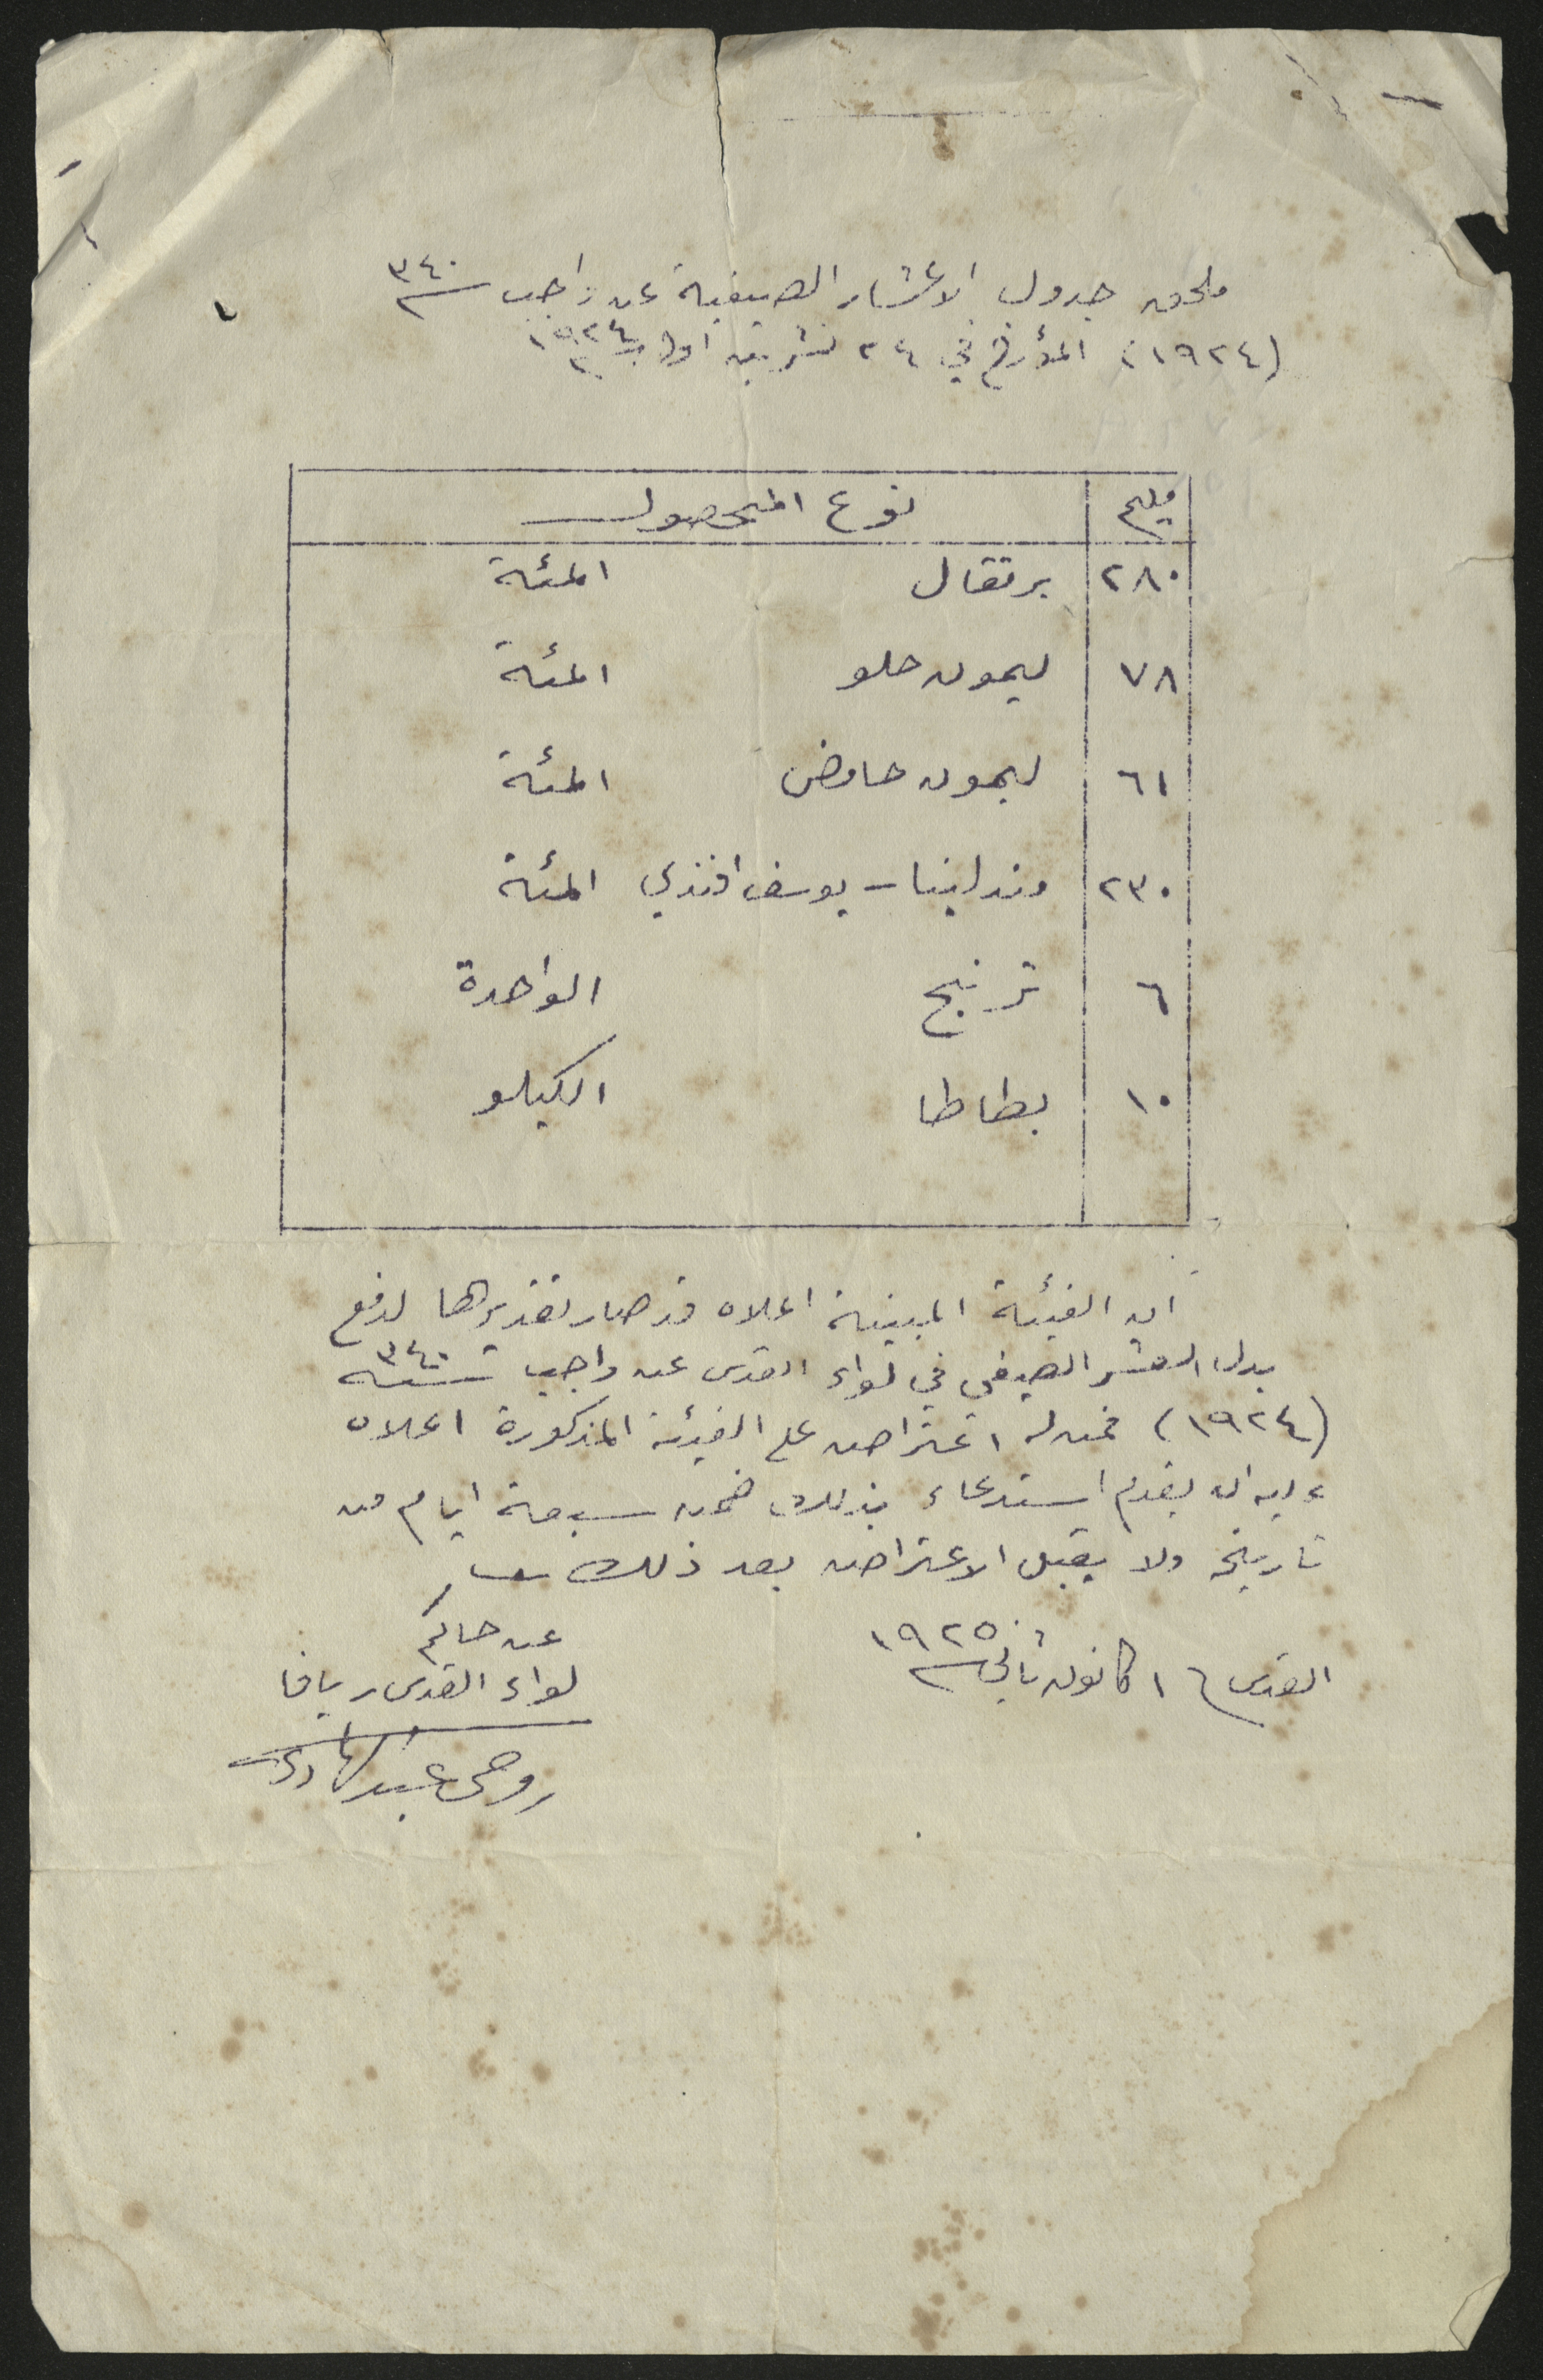 ملحق جدول الاعشار الصيفية عن واجب سنة ٣٤٠
(١٩٢٤) المؤرخ في ٢٤ تشرين اول سنة ١٩٢٤
مليم نوع المحصول
٢٨٠ برتقال المئة
٧٨ ليمون حلو المئة
٦١ ليمون حامض المئة
٢٣٠ مندلينا - يوسف افندي المئة
٦ ترنج الواحدة
١٠ بطاطا الكيلو
ان الفيئة المبينة اعلاه قد صار تقديرها لدفع
بدل العشر الصيفي في لواء القدس عن واجب سنة ٣٤٠
(١٩٢٤) فمن له اعتراض على الفيئة المذكورة اعلاه
عليه ان يقدم استدعاء بذلك ضمن سبعة ايام من
تاريخه ولا يقبل الاعتراض بعد ذلك
القدس ١٦ كانون ثاني سنة ١٩٢٥
عن حاكم
لواء القدس ويافا
روحي عبد الهادي